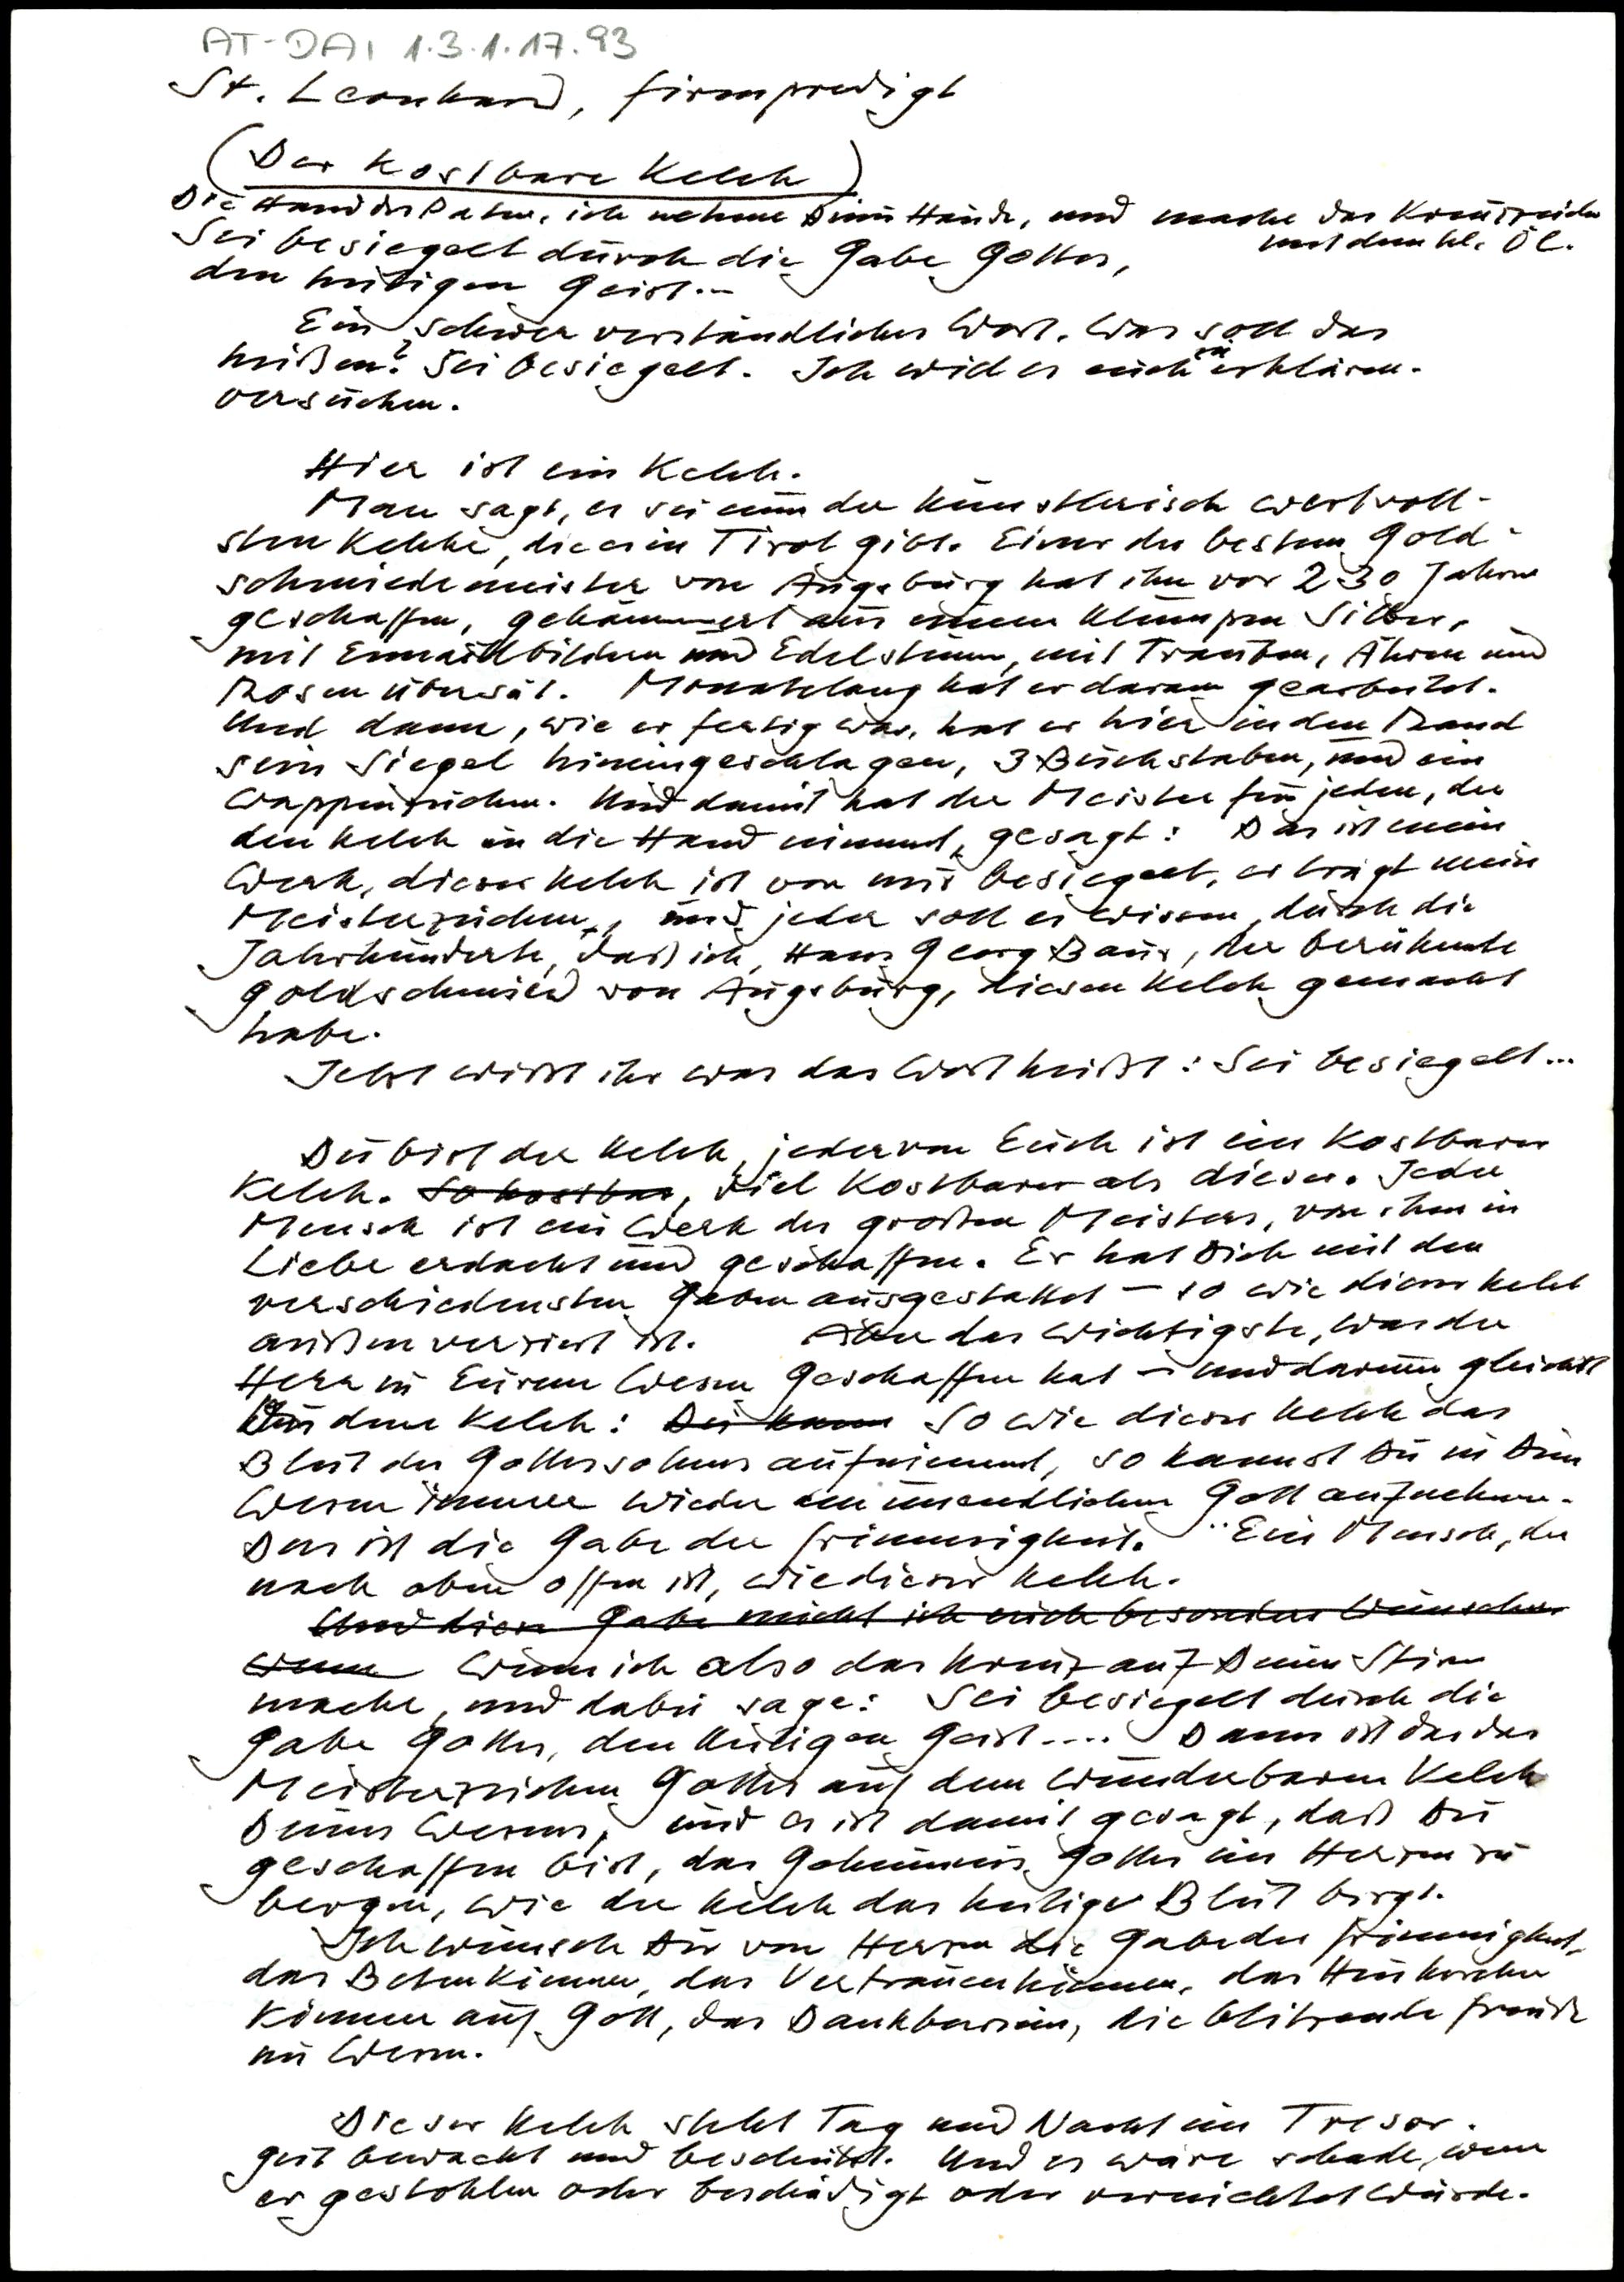 AT-DAI 1.3.1.17.93
St. Leonhard, Firmpredigt
(Der kostbare Kelch)
Die Hand des Paten, ich nehme Deine Hände, und mache das Kreuzzeichen
mit dem hl. Öl.
Sei besiegelt durch die Gabe Gottes,
den heiligen Geist...
Ein schwer verständliches Wort. Was soll das
heißen? Sei besiegelt. Ich will es euch zu erklären.
versuchen.
Hier ist ein Kelch.
Man sagt, er sei einer der künstlerisch wertvoll-
sten Kelche, die es in Tirol gibt. Einer der besten Gold-
schmiedemeister von Augsburg hat ihn vor 230 Jahren
geschaffen, gehämmert aus einem Klumpen Silber,
mit Emailbildern und Edelsteinen, mit Trauben, Ähren und
Rosen übersät. Monatelang hat er daran gearbeitet.
Und dann, wie er fertig war, hat er hier in den Rand
sein Siegel hineingeschlagen, 3 Buchstaben, und ein
Wappenzeichen. Und damit hat der Meister für jeden, der
den Kelch in die Hand nimmt, gesagt: Das ist mein
Werk, dieser Kelch ist von mir besiegelt, er trägt mein
Meisterzeichen, und jeder soll es wissen, durch die
Jahrhunderte, daß ich, Hans Georg Baur, der berühmte
Goldschmied von Augsburg, diesen Kelch gemacht
habe.
Jetzt wißt ihr was das Wort heißt: Sei besiegelt...
Du bist der Kelch, jeder von Euch ist ein kostbarer
Kelch. So kostbar, viel kostbarer als dieser. Jeder
Mensch ist ein Werk des großen Meisters, von ihm in
Liebe erdacht und geschaffen. Er hat Dich mit den
verschiedensten Gaben ausgestattet – so wie dieser Kelch
außen verziert ist. Aber das Wichtigste, was der
Herr in Eurem Wesen geschaffen hat – und darum gleichst
Du dem Kelch: Du kann So wie dieser Kelch das
Blut des Gottessohnes aufnimmt, so kannst Du in Dein
Wesen immer wieder den unendlichen Gott aufnehmen.
Das ist die Gabe der Frömmigkeit. Ein Mensch, der
nach oben offen ist, wie dieser Kelch.
Und diese Gabe möcht ich euch besonders wünschen
wenn Wenn ich also das Kreuz auf Deine Stirn
mache, und dabei sage: Sei besiegelt durch die
Gabe Gottes, den Heiligen Geist.... Dann ist das das
Meisterzeichen Gottes auf dem wunderbaren Kelch
Deines Wesens, und es ist damit gesagt, daß Du
geschaffen bist, das Geheimnis Gottes im Herzen zu
bergen, wie der Kelch das heilige Blut birgt.
Ich wünsch Dir von Herzen die Gabe der Frömmigkeit,
das Beten können, das Vertrauen können, das Hinhorchen
können auf Gott, das Dankbarsein, die blitzende Freude
im Wesen.
Dieser Kelch steht Tag und Nacht im Tresor.
gut bewacht und beschützt. Und es wäre schade, wenn
er gestohlen oder beschädigt oder vernichtet würde.